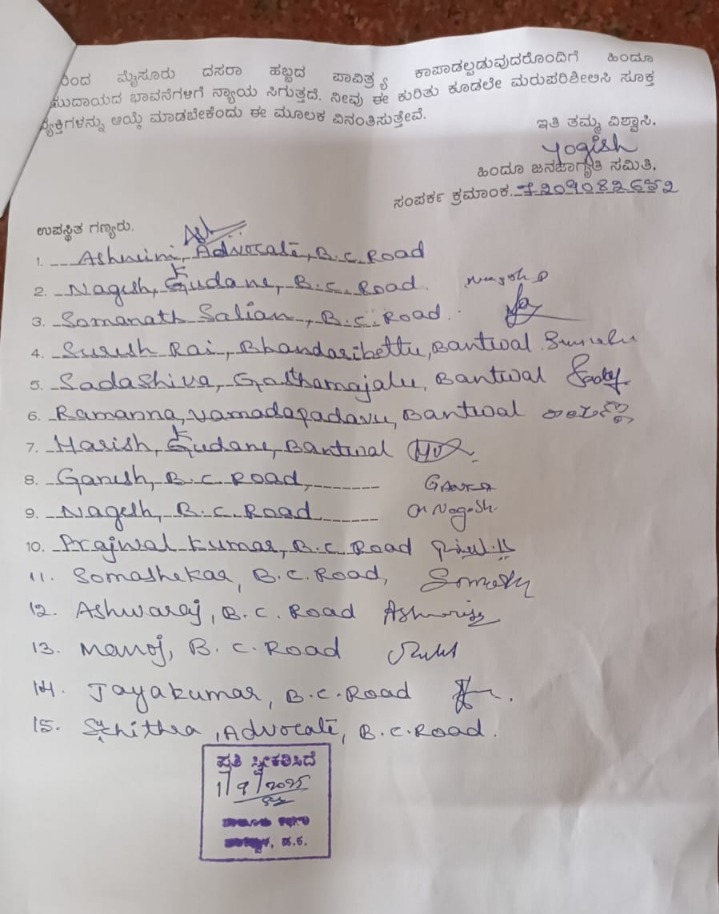 ಿಂದ ಮೈಸೂರು ದಸರಾ ಹಬ್ಬದ ಪಾವಿತ್ರ್ಯ ಕಾಪಾಡಲ್ಪಡುವುದರೊಂದಿಗೆ ಹಿಂದೂ
ಮುದಾಯದ ಭಾವನೆಗಳಿಗೆ ನ್ಯಾಯ ಸಿಗುತ್ತದೆ. ನೀವು ಈ ಕುರಿತು ಕೂಡಲೇ ಮರುಪರಿಶೀಲಿಸಿ ಸೂಕ್ತ
ವ್ಯಕ್ತಿಗಳನ್ನು ಆಯ್ಕೆ ಮಾಡಬೇಕೆಂದು ಈ ಮೂಲಕ ವಿನಂತಿಸುತ್ತೇವೆ.
ಇತಿ ತಮ್ಮ ವಿಶ್ವಾಸಿ,
Yogish
ಹಿಂದೂ ಜನಜಾಗೃತಿ ಸಮಿತಿ,
ಸಂಪರ್ಕ ಕ್ರಮಾಂಕ.
ಉಪಸ್ಥಿತ ಗಣ್ಯರು.
1. Ashwini, Advocate, B.C. Road
2. Nagesh, Gudane, B.C. Road. Nagesh
3. Somanath Salian, B.C. Road.
4. Suresh Rai, Bhandaribettu, Bantwal
5. Sadashiva, Golthamajalu, Bantwal
6. Ramanna, Vamadapadavu, Bantwal
7. Harish, Gudane, Bantwal
8. Ganesh, B.C. Road,
9. Nagesh, B.C. Road Nagesh
10. Prajwal Kumar, B.C. Road
11. Somashekar, B.C. Road,
12. Ashwaraj, B.C. Road
13. Manoj, B.C. Road
14. Jayakumar, B.C. Road
15. , Advocate, B.C. Road.
ಪ್ರತಿ ಸ್ವೀಕರಿಸಿದೆ
1/9/2025
ದ.ಕ.